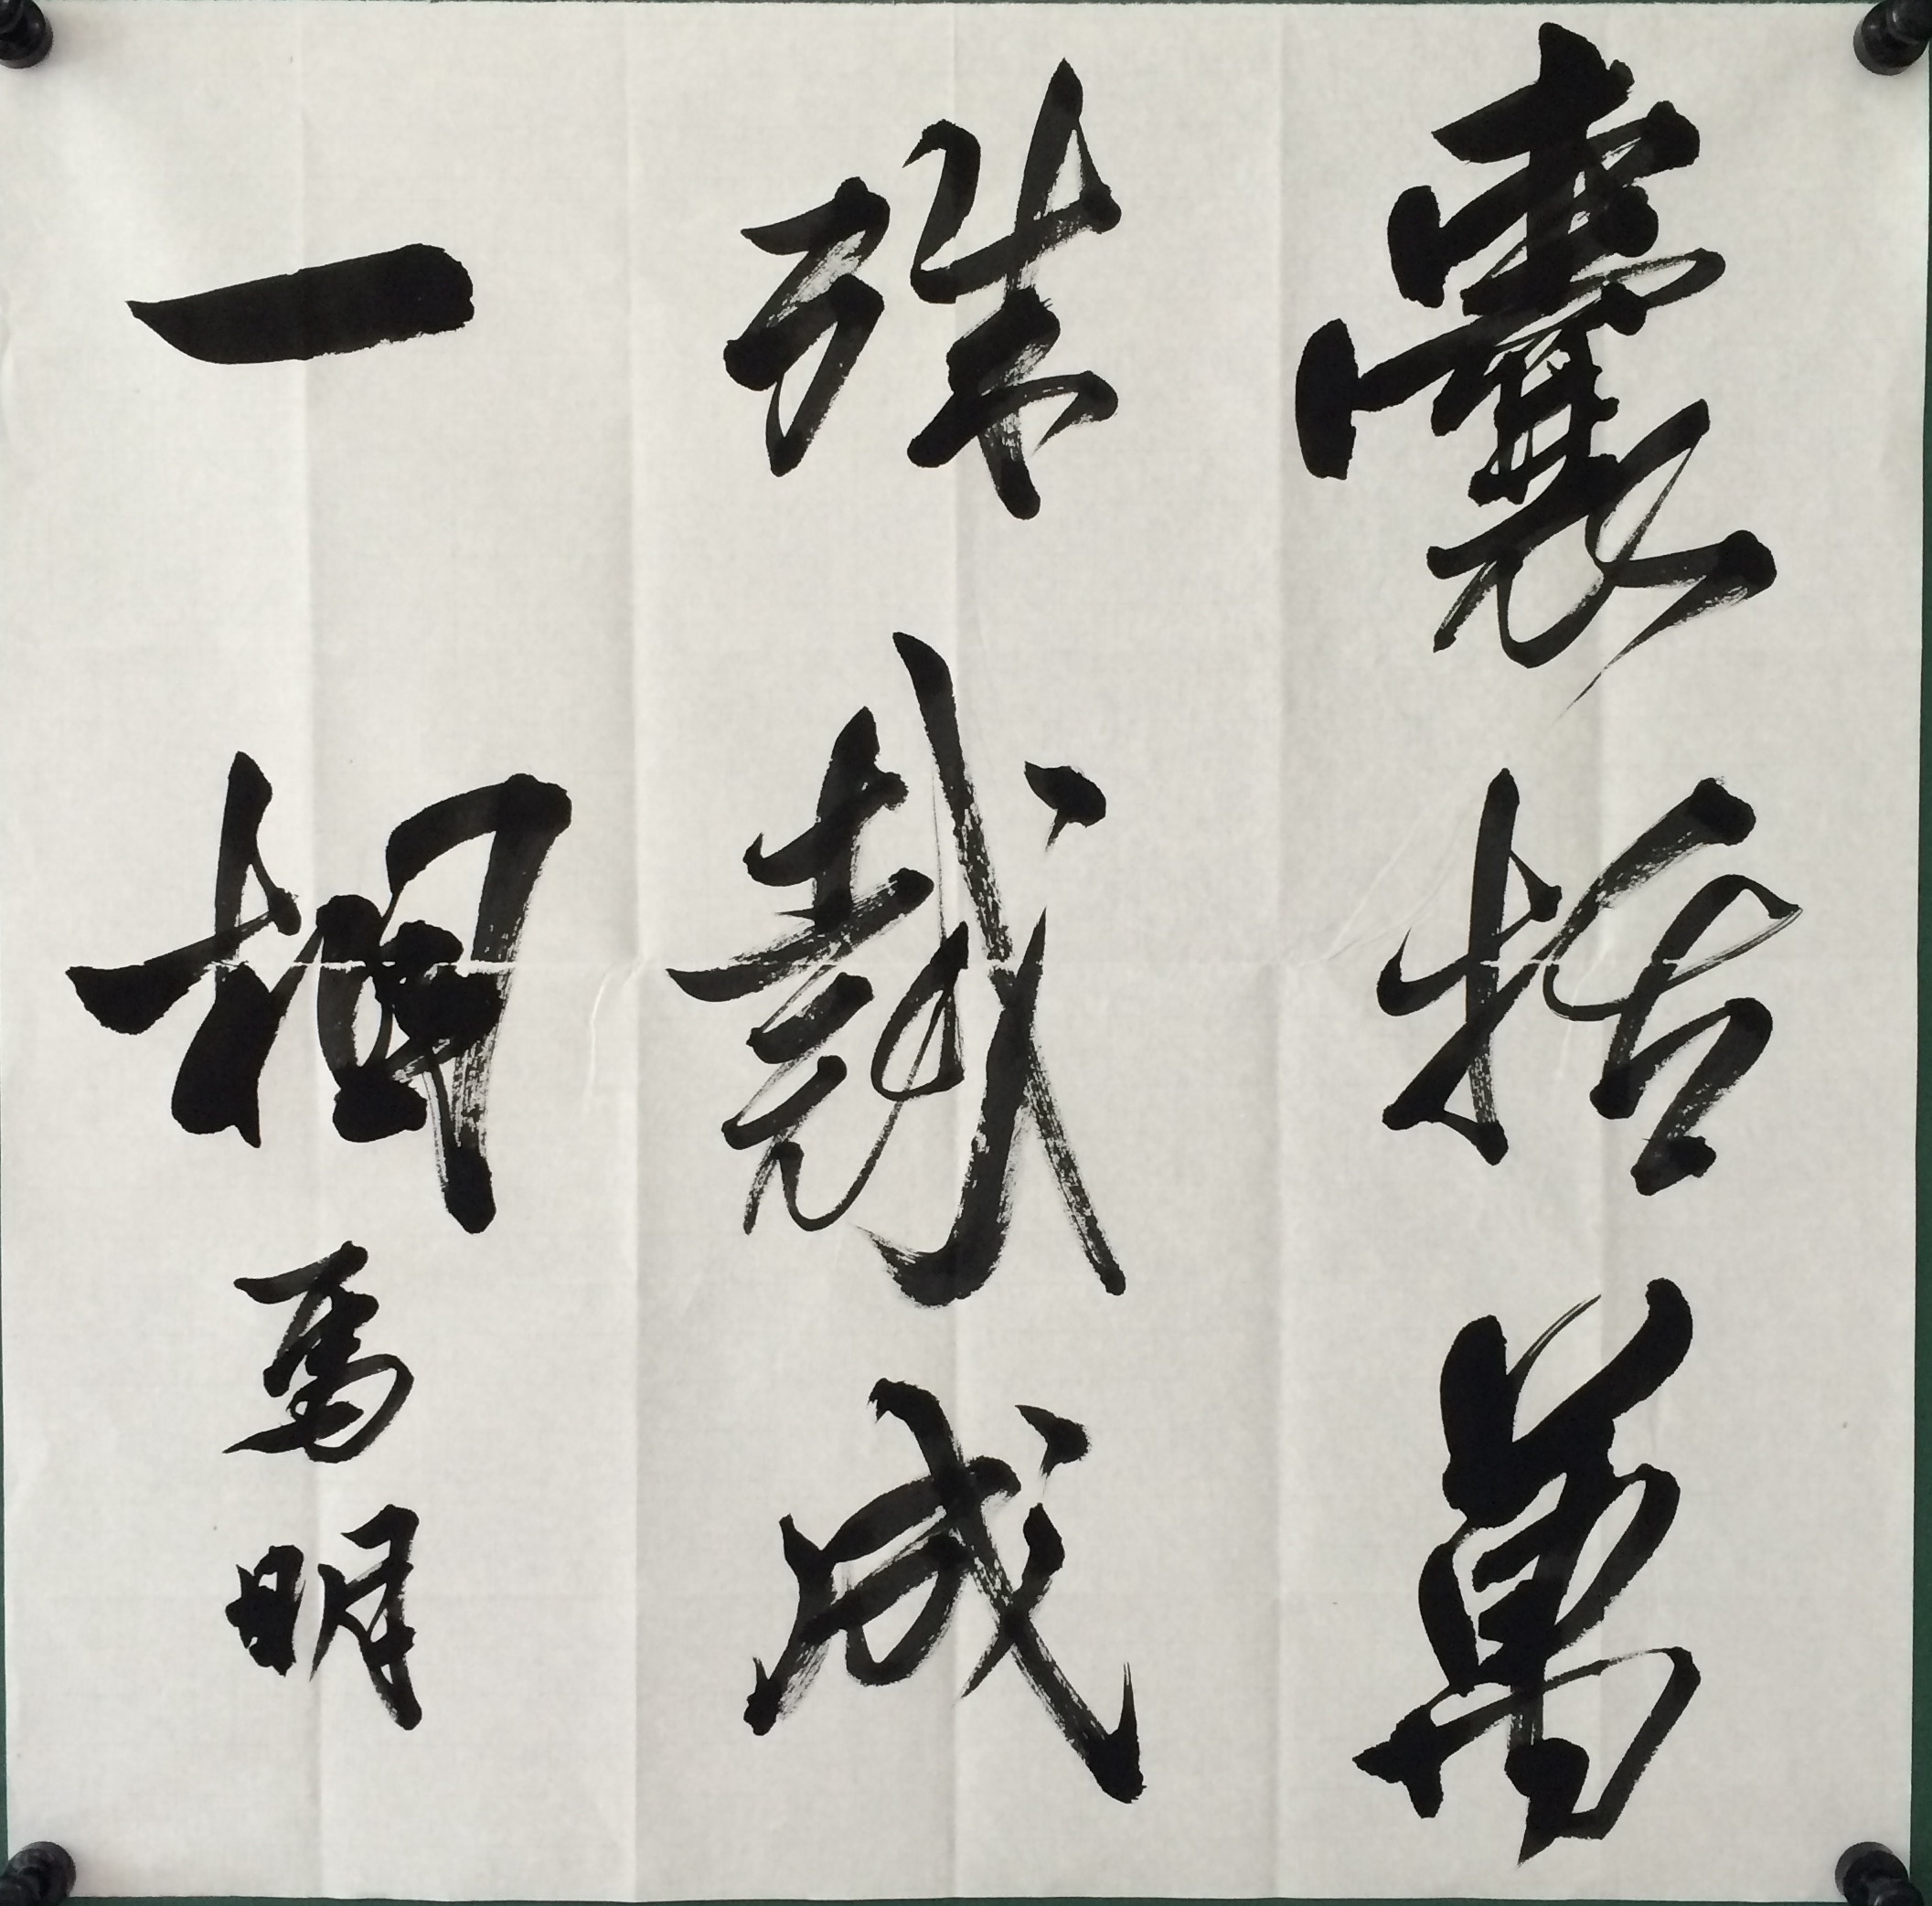 囊括萬
殊裁成
一相
马明